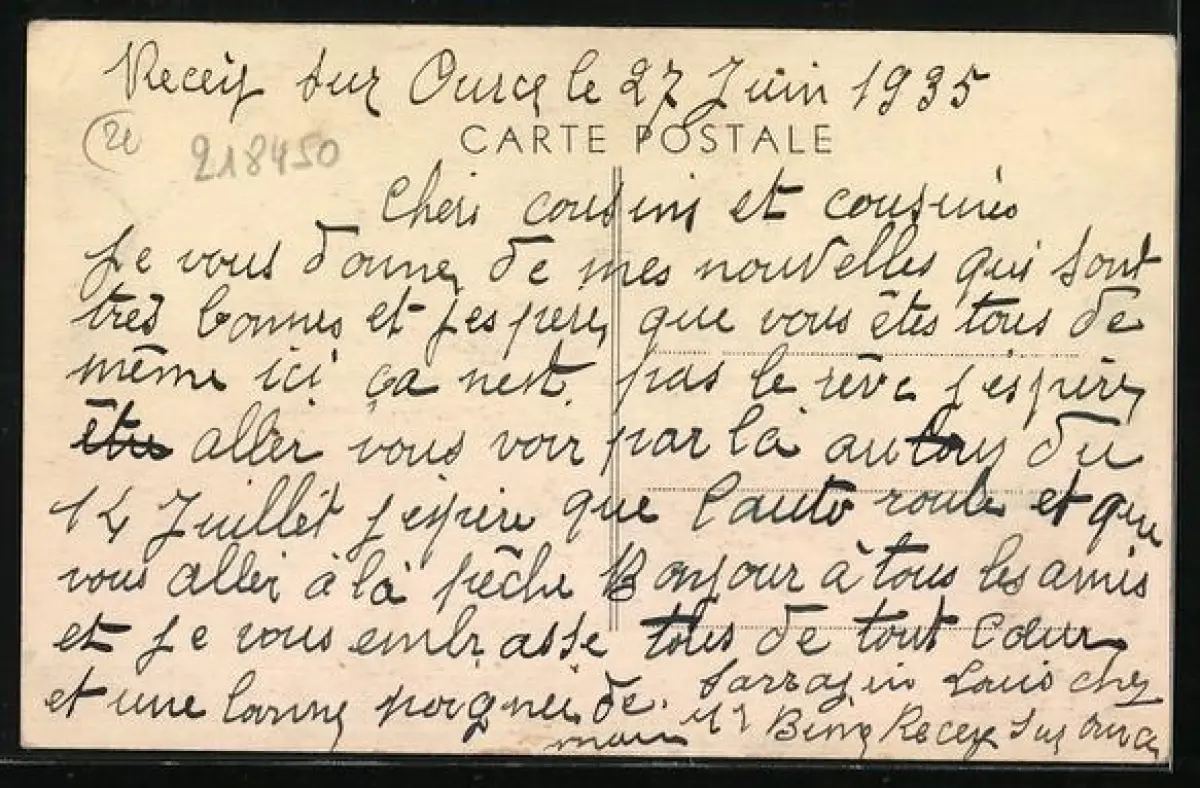 Recey sur Ource le 27 Juin 1935
CARTE POSTALE
218450
Chers cousins et cousines
Je vous donne de mes nouvelles qui sont
très bonnes et j'espere que vous êtes tous de
même ici ça nest pas le rêve j'espère
aller vous voir par là autour du
14 Juillet j'espère que l'auto roule et que
vous aller à la pêche Bonjour à tous les amis
et je vous embrasse tous de tout Cœur
et une bonne poignei de main
Sarrazin Louis chez
Mr Recey sur Ource